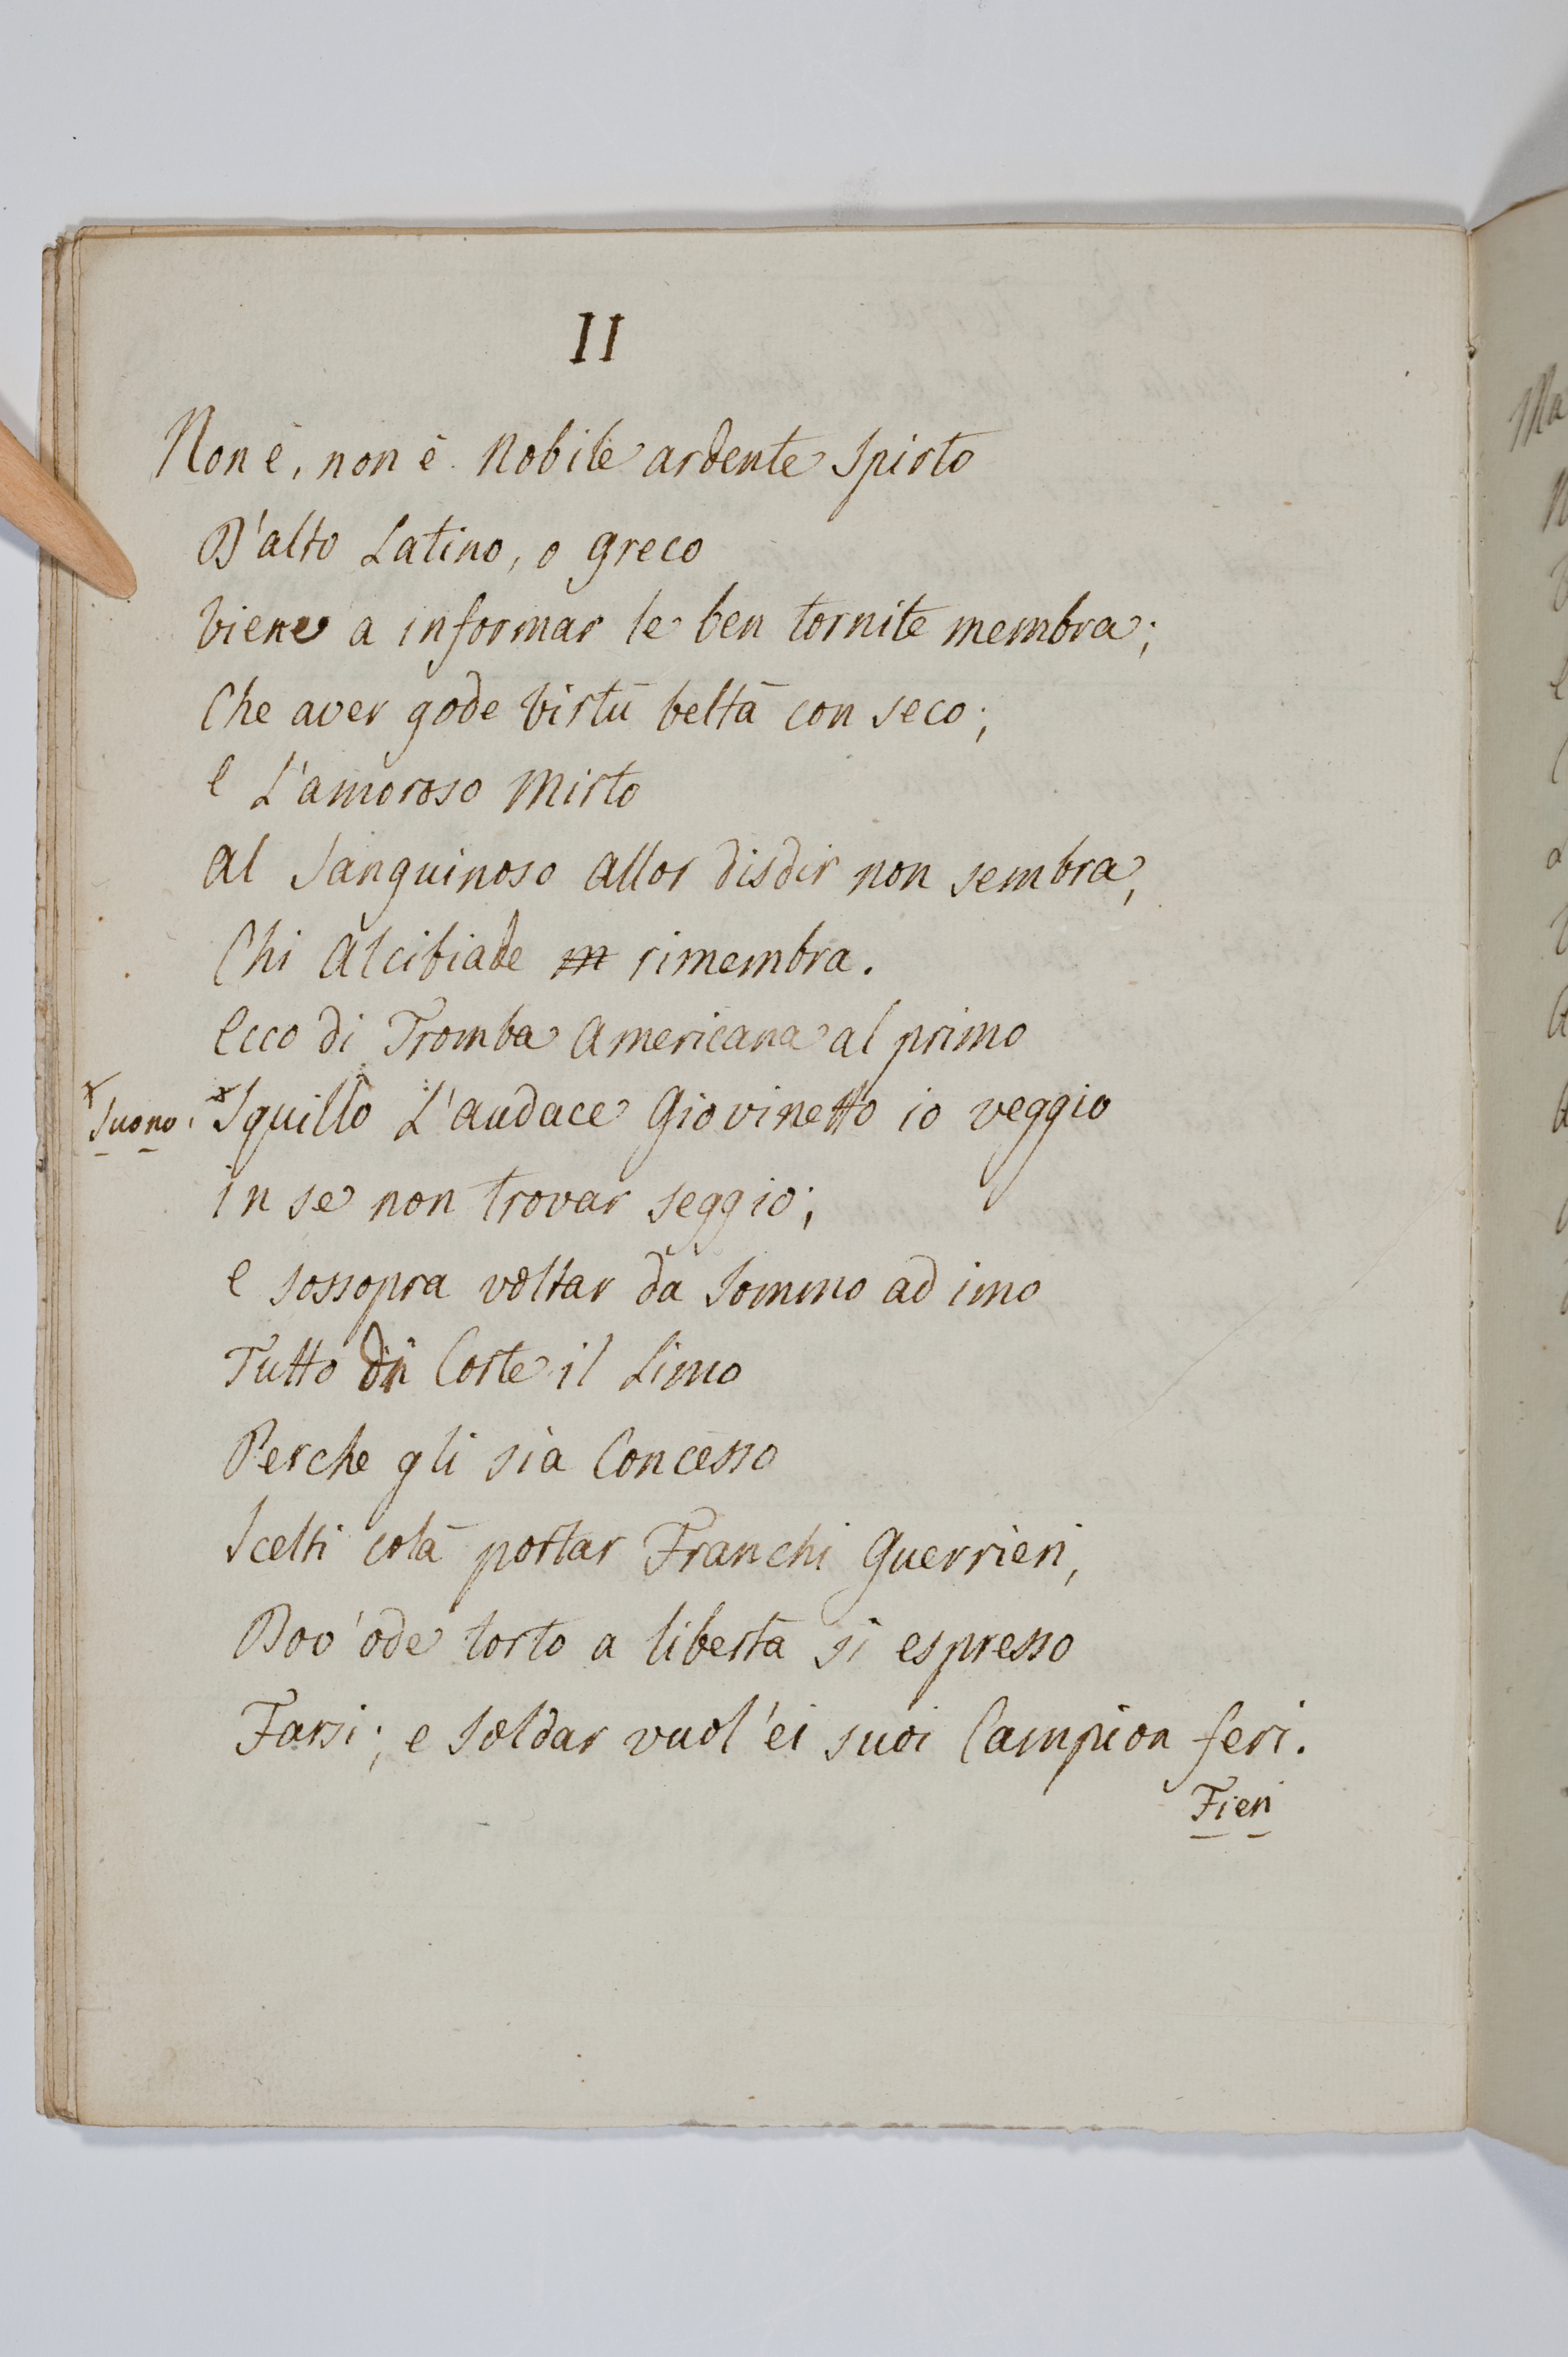 II
Non è, non è Nobile ardente Spirto
D'alto Latino, o greco
Viene a informar le ben tornite membra;
Che aver gode Virtù beltà con seco;
e L'amoroso Mirto
al Sanguinoso allor disdir non sembra,
Chi Alcibiade m rimembra.
Ecco di Tromba Americana al primo
x Suono. x Squillo L'audace Giovinetto io veggio
in se non trovar seggio;
e sossopra voltar da Sommo ad imo
Tutto di Corte il Limo
Perche gli sia Concesso
Scelti colà portar Franchi Guerrieri,
Dov'ode torto a libertà sì espresso
Farsi; e Soldar vuol'ei suoi Campion feri.
Fieri